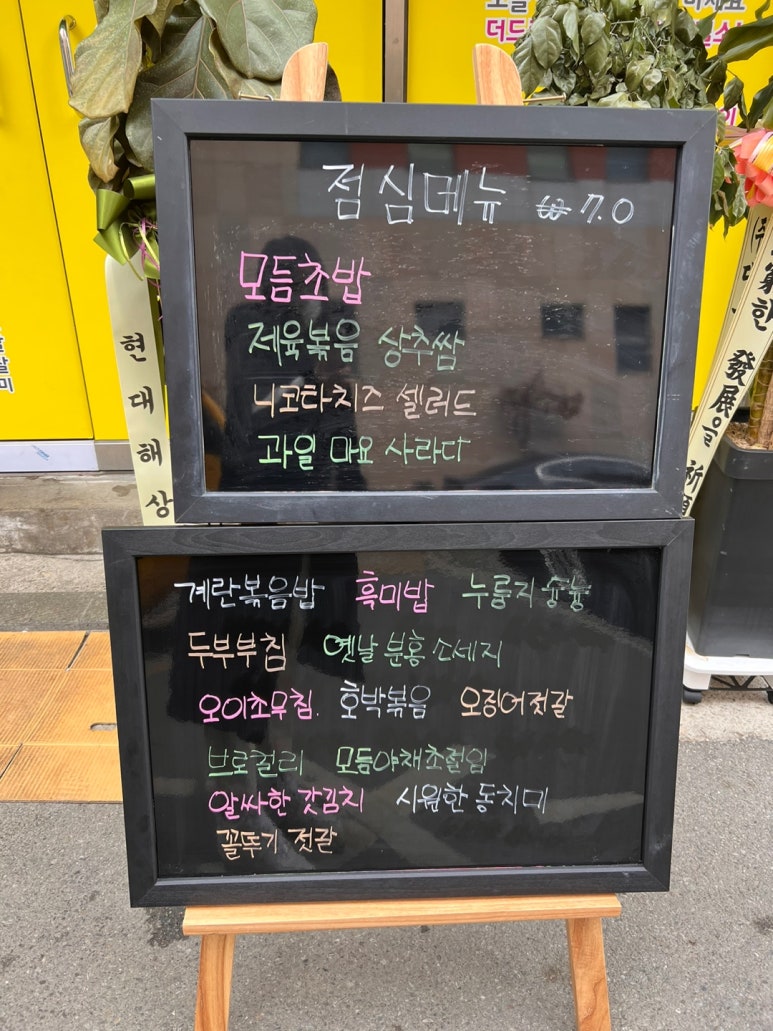 더드
점심메뉴 ₩ 7.0
모듬초밥
제육볶음 상추쌈
니코타치즈 셀러드
과일 마요 사라다
계란볶음밥 흑미밥 누룽지 숭늉
두부부침 옛날 분홍 소세지
오이초무침. 호박볶음 오징어젓갈
브로컬리 모듬야채초절임
알싸한 갓김치 시원한 동치미
꼴뚜기 젓갈
현대해상
발전을 祈願